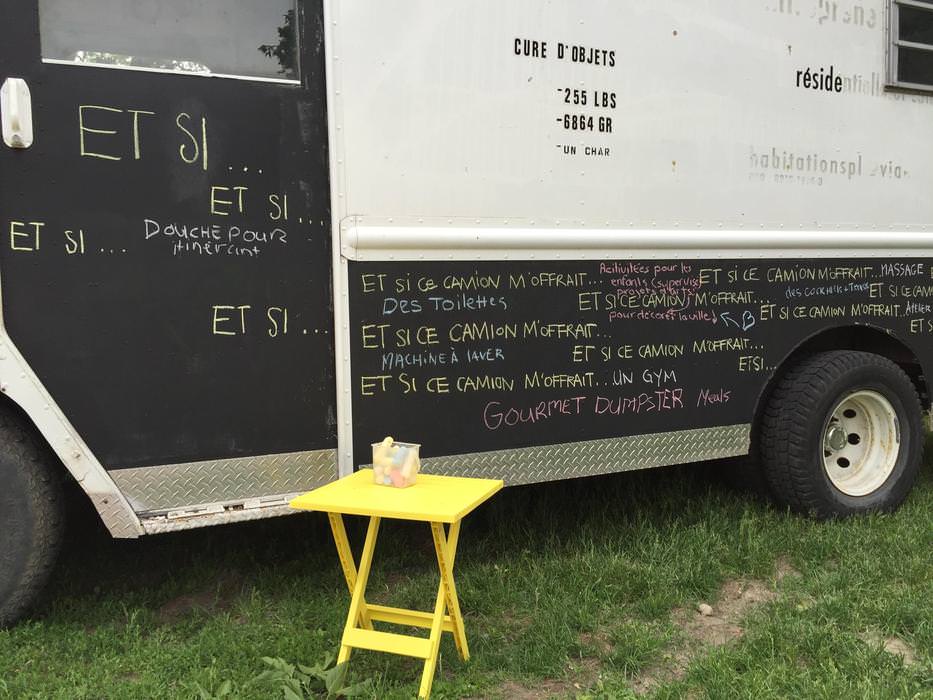 CURE D'OBJETS
-255 LBS
-6864 GR
-UN CHAR
réside
habitationspl
ET SI ...
ET SI ...
ET SI ...
DOUCHE POUR
itinérant
ET SI ...
ET SI CE CAMION M'OFFRAIT...
DES TOILETTES
Activitées pour les
enfants (supervise
projets d'arts)
pour décorer la ville
ET SI CE CAMION M'OFFRAIT... MASSAGE
ET SI CE CAMION M'OFFRAIT...
des cocktails +
ET SI CE CAM
ET SI CE CAMION M'OFFRAIT...
MACHINE À LAVER
ET SI CE CAMION M'OFFRAIT...
ET SI
ET SI CE CAMION M'OFFRAIT...
ETSI...
ET SI CE CAMION M'OFFRAIT... UN GYM
GOURMET DUMPSTER Meals